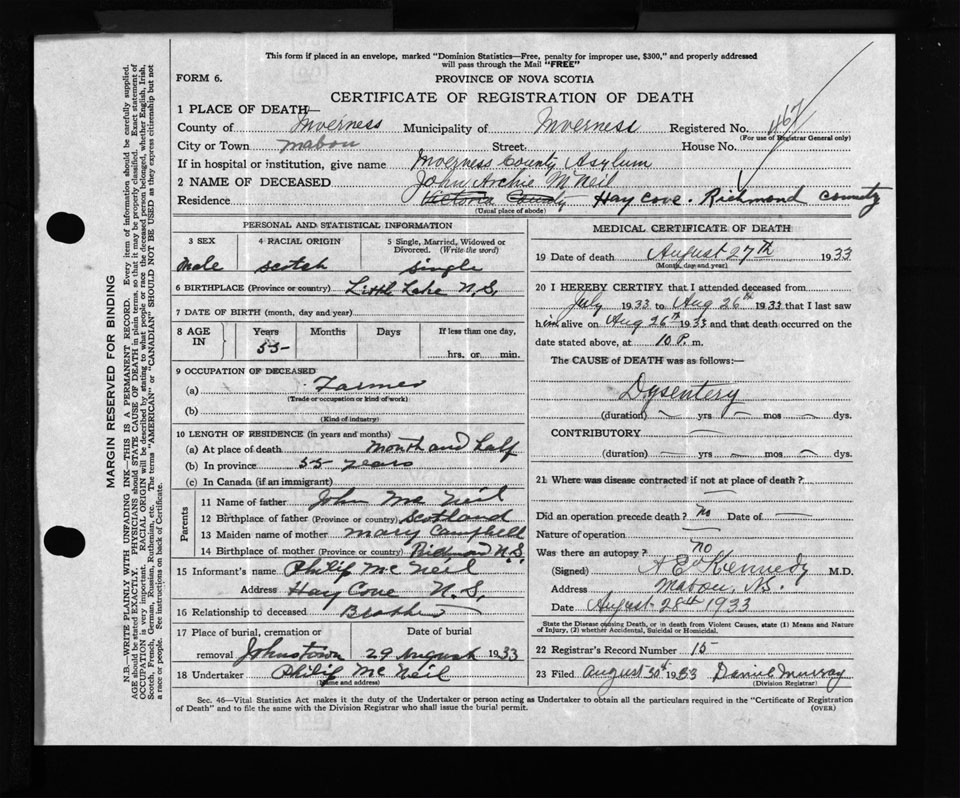 This form if placed in an envelope, marked "Dominion Statistics—Free, penalty for improper use, $300," and properly addressed
will pass through the Mail "FREE"
FORM 6.
PROVINCE OF NOVA SCOTIA
CERTIFICATE OF REGISTRATION OF DEATH
1 PLACE OF DEATH—
County of Inverness Municipality of Inverness Registered No.
(For use of Registrar General only)
City or Town Mabou Street House No.
If in hospital or institution, give name Inverness County Asylum
2 NAME OF DECEASED John Archie McNeil
Residence Victoria County Hay Cove. Richmond County
(Usual place of abode)
PERSONAL AND STATISTICAL INFORMATION
3 SEX 4 RACIAL ORIGIN 5 Single, Married, Widowed or Divorced. (Write the word)
Male Scotch Single
6 BIRTHPLACE (Province or country) Little Lake N.S.
7 DATE OF BIRTH (month, day and year)
8 AGE IN Years Months Days If less than one day,
55 hrs. or min.
9 OCCUPATION OF DECEASED
(a) Farmer
(Trade or occupation or kind of work)
(b)
(Kind of industry)
10 LENGTH OF RESIDENCE (in years and months)
(a) At place of death month and half
(b) In province 55 years
(c) In Canada (if an immigrant)
Parents
11 Name of father John Mc Neil
12 Birthplace of father (Province or country) Scotland
13 Maiden name of mother Mary Campbell
14 Birthplace of mother (Province or country) Richmond N.S.
15 Informant's name Philip Mc Neil
Address Hay Cove N.S.
16 Relationship to deceased Brother
17 Place of burial, cremation or Date of burial
removal Johnstown 29 August 1933
18 Undertaker Philip Mc Neil
(Name and address)
MEDICAL CERTIFICATE OF DEATH
19 Date of death August 27th 1933
(Month, day and year)
20 I HEREBY CERTIFY that I attended deceased from
July 1933 to Aug 26th 1933 that I last saw
him alive on Aug 26th 1933 and that death occurred on the
date stated above, at 10 P. m.
The CAUSE of DEATH was as follows:—
Dysentery
(duration) — yrs — mos — dys.
CONTRIBUTORY —
(duration) — yrs — mos — dys.
21 Where was disease contracted if not at place of death? —
Did an operation precede death? no Date of —
Nature of operation —
Was there an autopsy? no
(Signed) Kennedy M.D.
Address Mabou, N.S.
Date August 28th 1933
State the Disease causing Death, or in death from Violent Causes, state (1) Means and Nature
of Injury, (2) whether Accidental, Suicidal or Homicidal.
22 Registrar's Record Number 15
23 Filed August 30th 1933 Daniel Murray
(Division Registrar)
Sec. 46—Vital Statistics Act makes it the duty of the Undertaker or person acting as Undertaker to obtain all the particulars required in the "Certificate of Registration
of Death" and to file the same with the Division Registrar who shall issue the burial permit. (OVER)
MARGIN RESERVED FOR BINDING
N.B.—WRITE PLAINLY WITH UNFADING INK—THIS IS A PERMANENT RECORD. Every item of information should be carefully supplied.
AGE should be stated EXACTLY. PHYSICIANS should STATE CAUSE OF DEATH in plain terms, so that it may be properly classified. Exact statement of
OCCUPATION is very important. RACIAL ORIGIN will be described by stating to what people or race the deceased person belonged, whether English, Irish,
Scotch, French, German, Russian, Ruthenian, etc. The terms "AMERICAN" or "CANADIAN" SHOULD NOT BE USED as they express citizenship but not
a race or people. See instructions on back of Certificate.